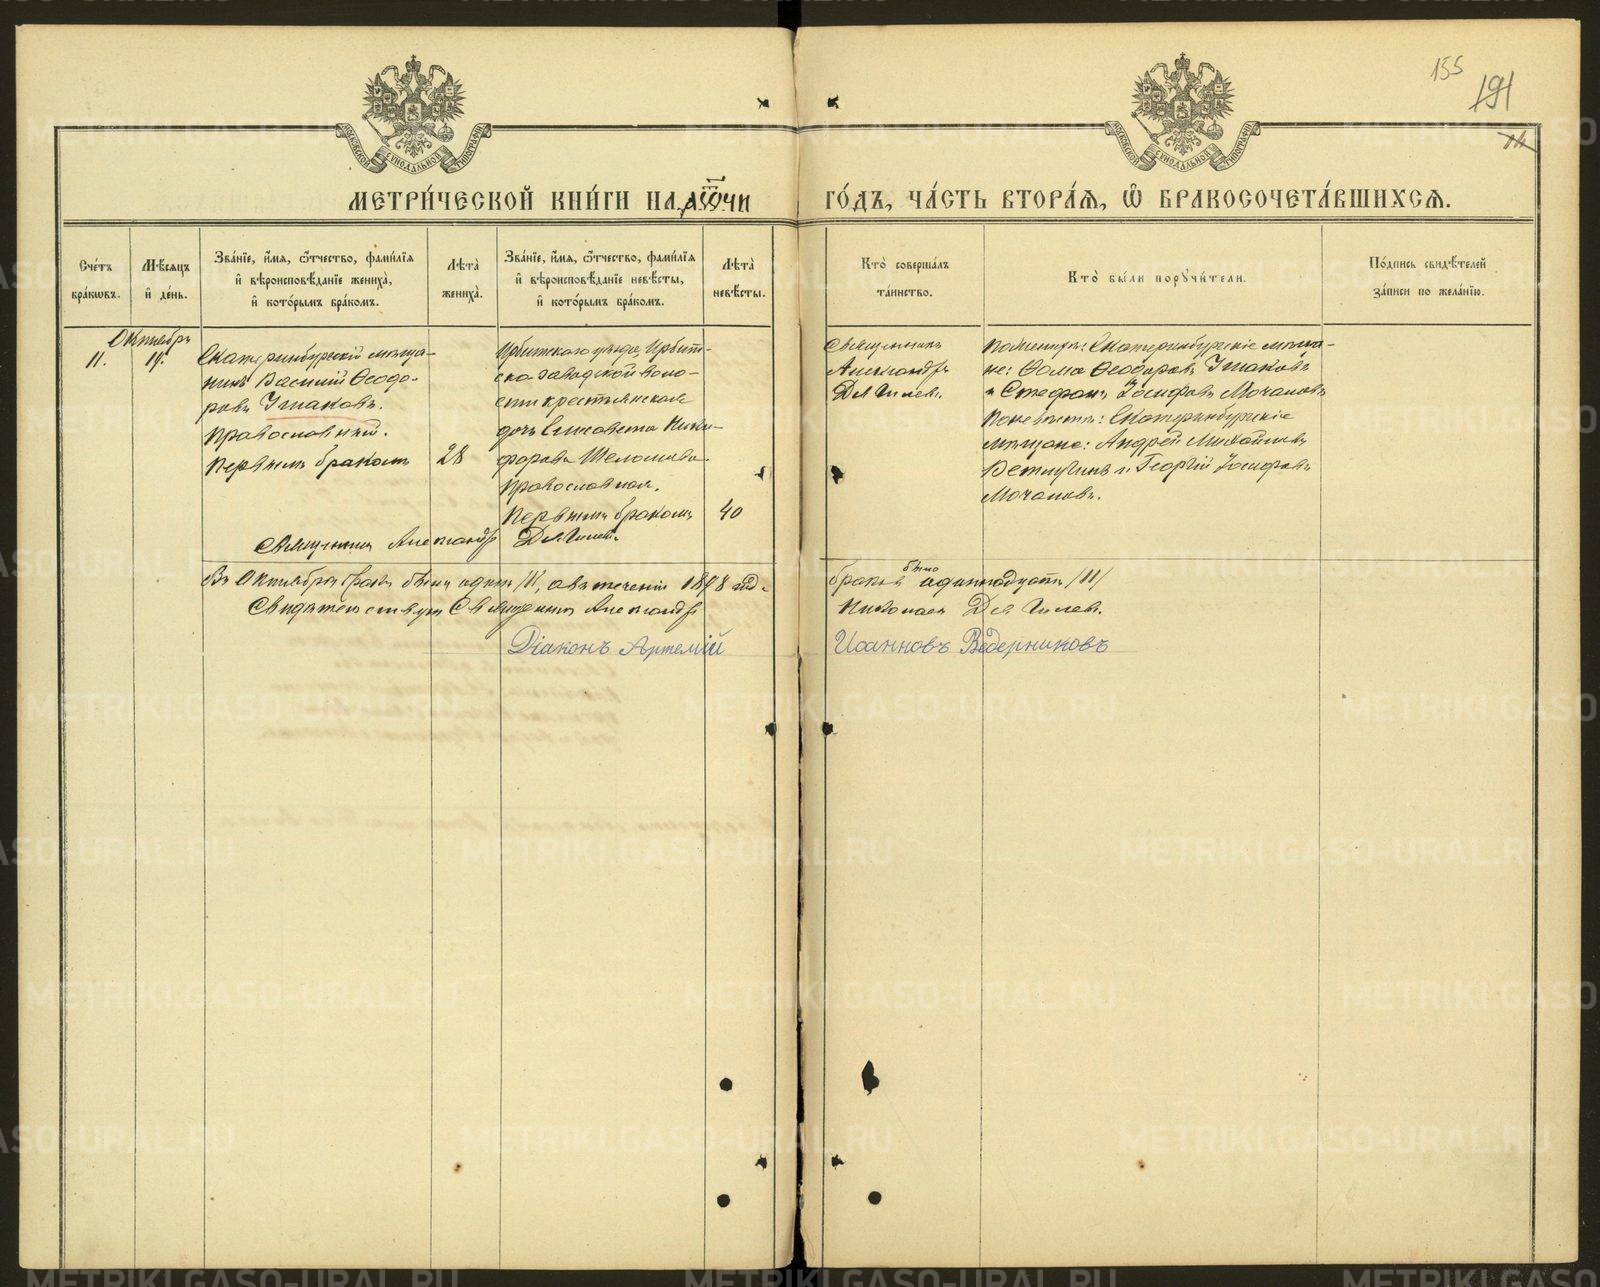 155
191
МЕТРИ́ЧЕСКОЙ КНИ́ГИ НА
ГО́ДЪ, ЧА́СТЬ ВТОРА́Я, Ѡ҆ БРАКОСОЧЕТА́ВШИХСЯ.
Сче́тъ бра́кѡвъ.
Мѣ́сяцъ и҆ де́нь.
Зва́нїе, и҆́мя, ѻ҆́тчество, фами́лїя
и҆ вѣроисповѣ́данїе жениха̀,
и҆ кото́рымъ бра́комъ.
Лѣ́та̀ жениха̀.
Зва́нїе, и҆́мя, ѻ҆́тчество, фами́лїя
и҆ вѣроисповѣ́данїе невѣ́сты,
и҆ кото́рымъ бра́комъ.
Лѣ́та̀ невѣ́сты.
Кто̀ соверша́лъ та́инство.
Кто̀ бы́ли порꙋчи́тели.
По́дпись свидѣ́телей за́писи по жела́нїю.
Октябрь
11.
19.
Екатеринбургскій мѣща-
нинъ Василій Ѳеодо-
ровъ Ушаковъ.
Православный.
Первымъ бракомъ
28
Ирбитскаго уѣзда, Ирбит-
ско-заводской воло-
сти крестьянская
дочь Елисавета Ники-
форова
Православная.
Первымъ бракомъ
40
Священникъ
Александръ
По женихѣ: Екатеринбургскіе мѣща-
не: Ѳома Ѳеодоровъ Ушаковъ
и Стефанъ Іосифовъ Мочаловъ
По невѣстѣ: Екатеринбургскіе
мѣщане: Андрей Михайловъ
и Георгій Іосифовъ
Мочаловъ.
Священникъ Александръ
Въ Октябрѣ бракъ былъ одинъ /1/, а въ теченіи 1898 года
браковъ было одиннадцать /11/
Свидѣтельствую Священникъ Александръ
Николаевъ
Діаконъ Артемій
Иоанновъ Ведерниковъ
METRIKI.GASO-URAL.RU